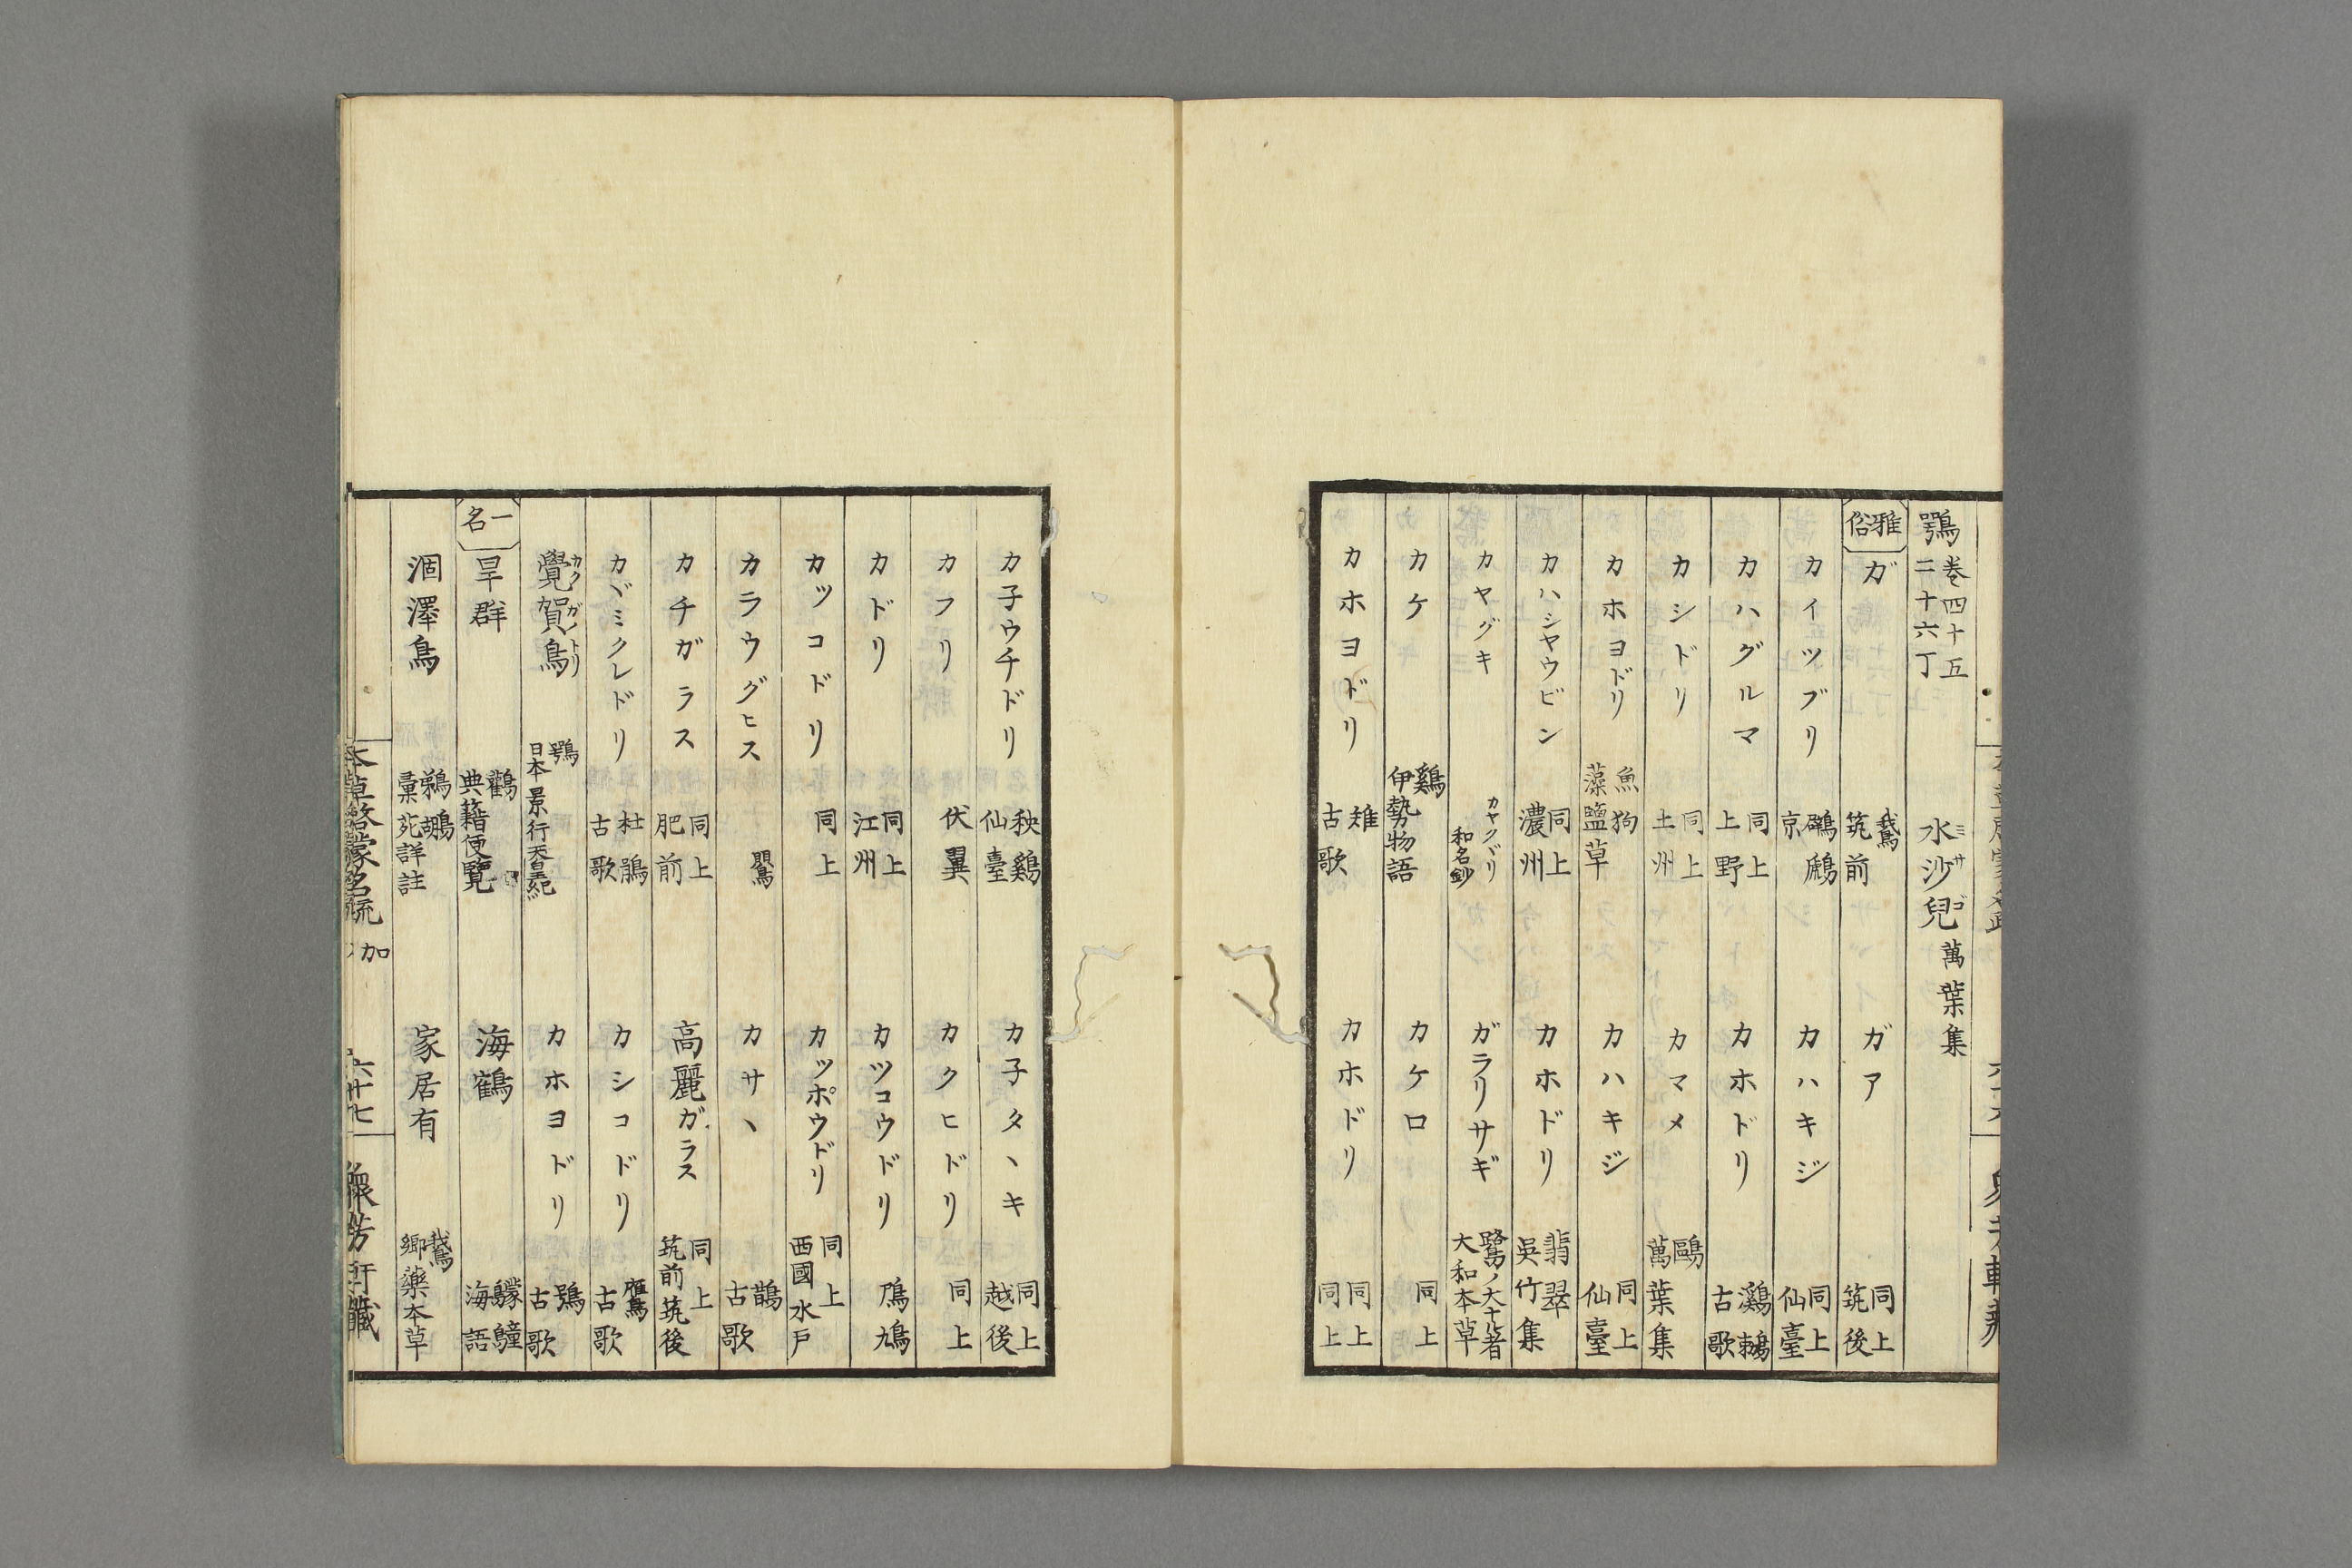 鶚 巻四十五 二十六丁 水沙兒 ミサゴ 萬葉集
雅俗 ガ 鵞 筑前 ガア 同上 筑後
カイツブリ 鸊鷉 京 カハキジ 同上 仙臺
カハグルマ 同上 上野 カホドリ 鸂鶒 古歌
カシドリ 同上 土州 カマメ 鷗 萬葉集
カホヨドリ 魚狗 藻鹽草 カハキジ 同上 仙臺
カハシヤウビン 同上 濃州 カホドリ 翡翠 呉竹集
カヤグキ カヤクヾリ 和名鈔 ガラリサギ 鷺ノ大ナル者 大和本草
カケ 鷄 伊勢物語 カケロ 同上
カホヨドリ 雉 古歌 カホドリ 同上 同上
カ子ウチドリ 秧鷄 仙臺 カ子タヽキ 同上 越後
カフリ 伏翼 カクヒドリ 同上
カドリ 同上 江州 カツコウドリ 鳲鳩
カツコドリ 同上 カツポウドリ 同上 西國 水戸
カラウグヒス カサヽ 鵲 古歌
カチガラス 同上 肥前 高麗ガラス 同上 筑前筑後
カヾミクレドリ 杜鵑 古歌 カシコドリ 鴈 古歌
覺賀鳥 カクガノトリ 鶚 日本景行天皇紀 カホヨドリ 鴞 古歌
一名 旱群 鸛 典籍便覽 海鶴 鸏鸛 海語
涸澤鳥 鵜鶘 彙苑詳註 家居有 鵞 郷藥本草
本草啓蒙名疏 加 六十七 衆芳軒藏